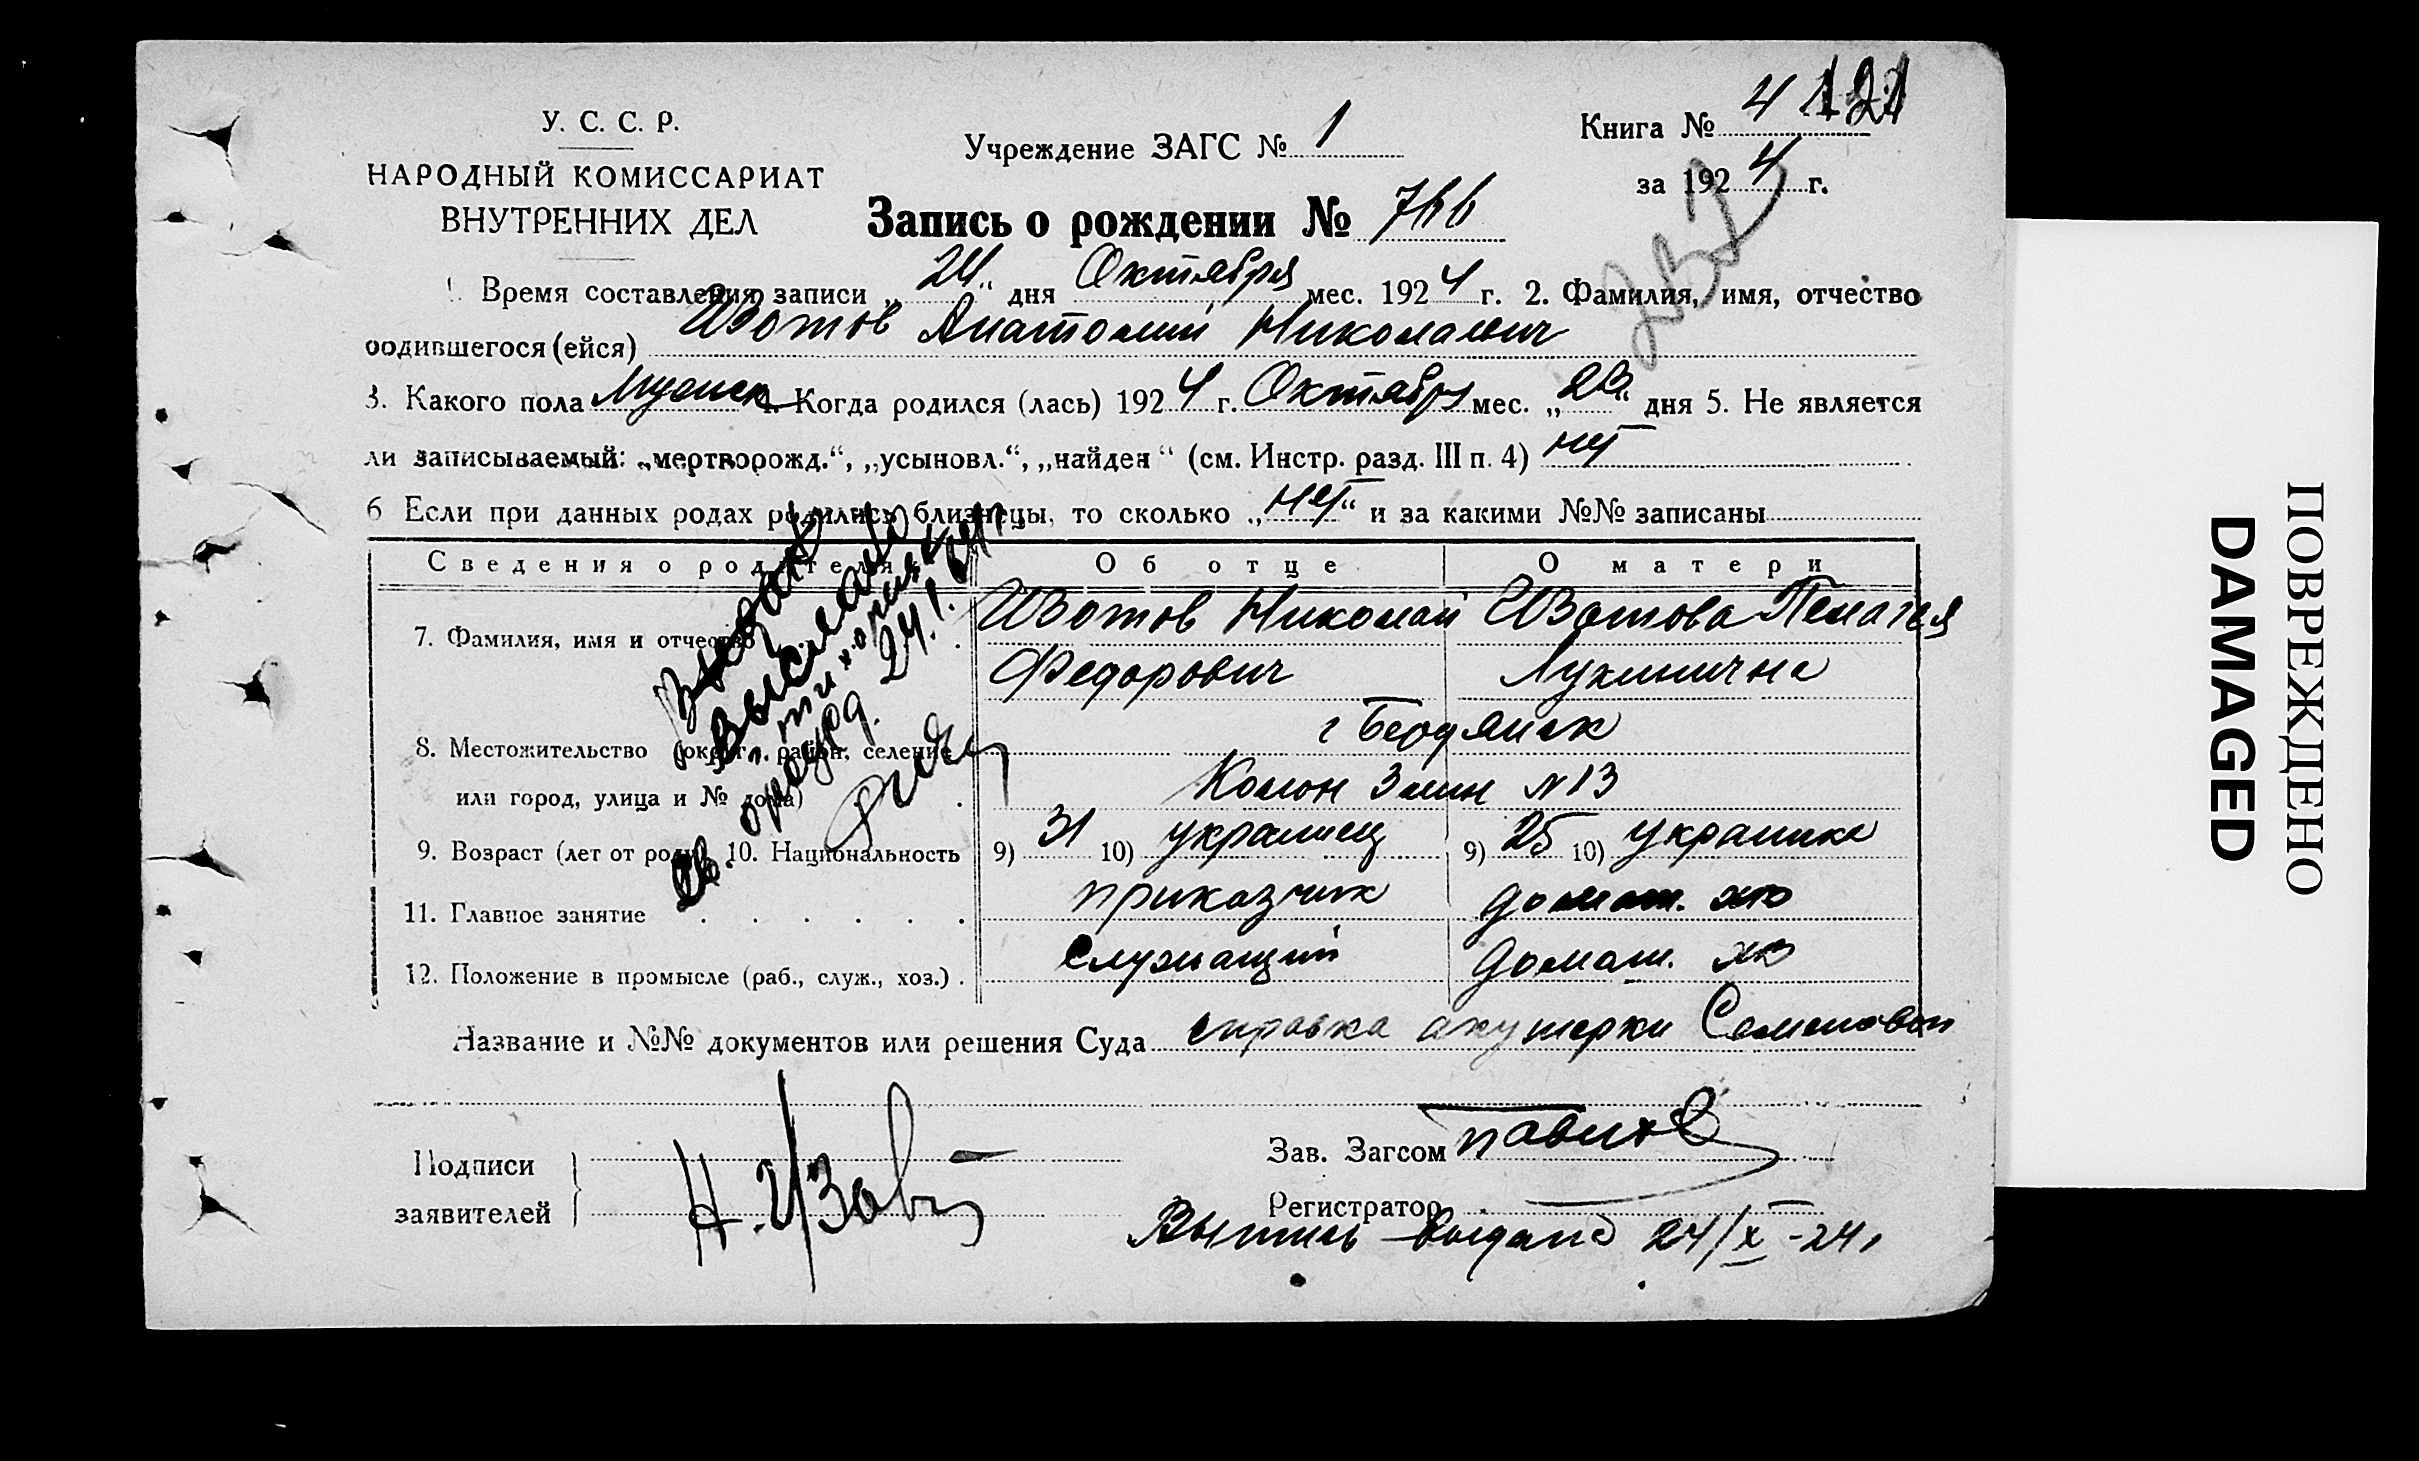 У. С. С. Р.
НАРОДНЫЙ КОМИССАРИАТ
ВНУТРЕННИХ ДЕЛ
Учреждение ЗАГС № 1
Книга № 4 121
за 1924 г.
Запись о рождении № 766
1. Время составления записи „24“ дня Октября мес. 1924 г. 2. Фамилия, имя, отчество
родившегося (ейся) Изотов Анатолий Николаевич
3. Какого пола Мужск 4. Когда родился (лась) 1924 г. Октябрь мес. „23“ дня 5. Не является
ли записываемый: „мертворожд.“, „усыновл.“, „найден“ (см. Инстр. разд. III п. 4) нет
6 Если при данных родах родились близнецы, то сколько „нет“ и за какими №№ записаны
Сведения о родителях
Об отце
О матери
7. Фамилия, имя и отчество
Изотов Николай
Федорович
Изотова Пелагея
Лукинична
8. Местожительство (округ, район, селение
или город, улица и № дома)
г Бердянск
Колон № 13
9. Возраст (лет от роду) 10. Национальность
9) 31 10) украинец
9) 25 10) украинка
11. Главное занятие
приказчик
домаш. хоз
12. Положение в промысле (раб., служ., хоз.)
служащий
домаш. хоз
Название и №№ документов или решения Суда справка акушерки Семеновой
Подписи
заявителей
Н. Изотов
Зав. Загсом
Регистратор
Выпись выдана 24/X -24г
233
выслано
24.1.
ПОВРЕЖДЕНО
DAMAGED